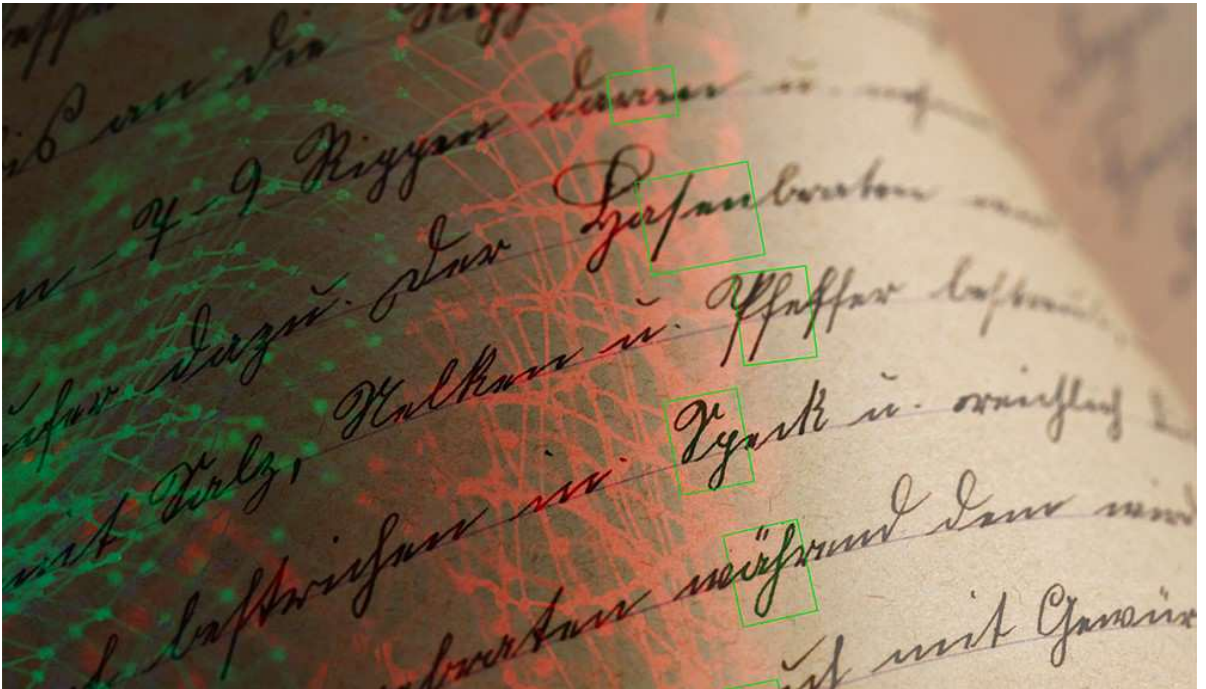 bis an die Ripp
7-9 Rippen daran u. noch
dazu. Der Hasenbraten
mit Salz, Nelken u. Pfeffer bestreut
bestrichen in Speck u. reichlich
braten während dem wird
mit Gewür